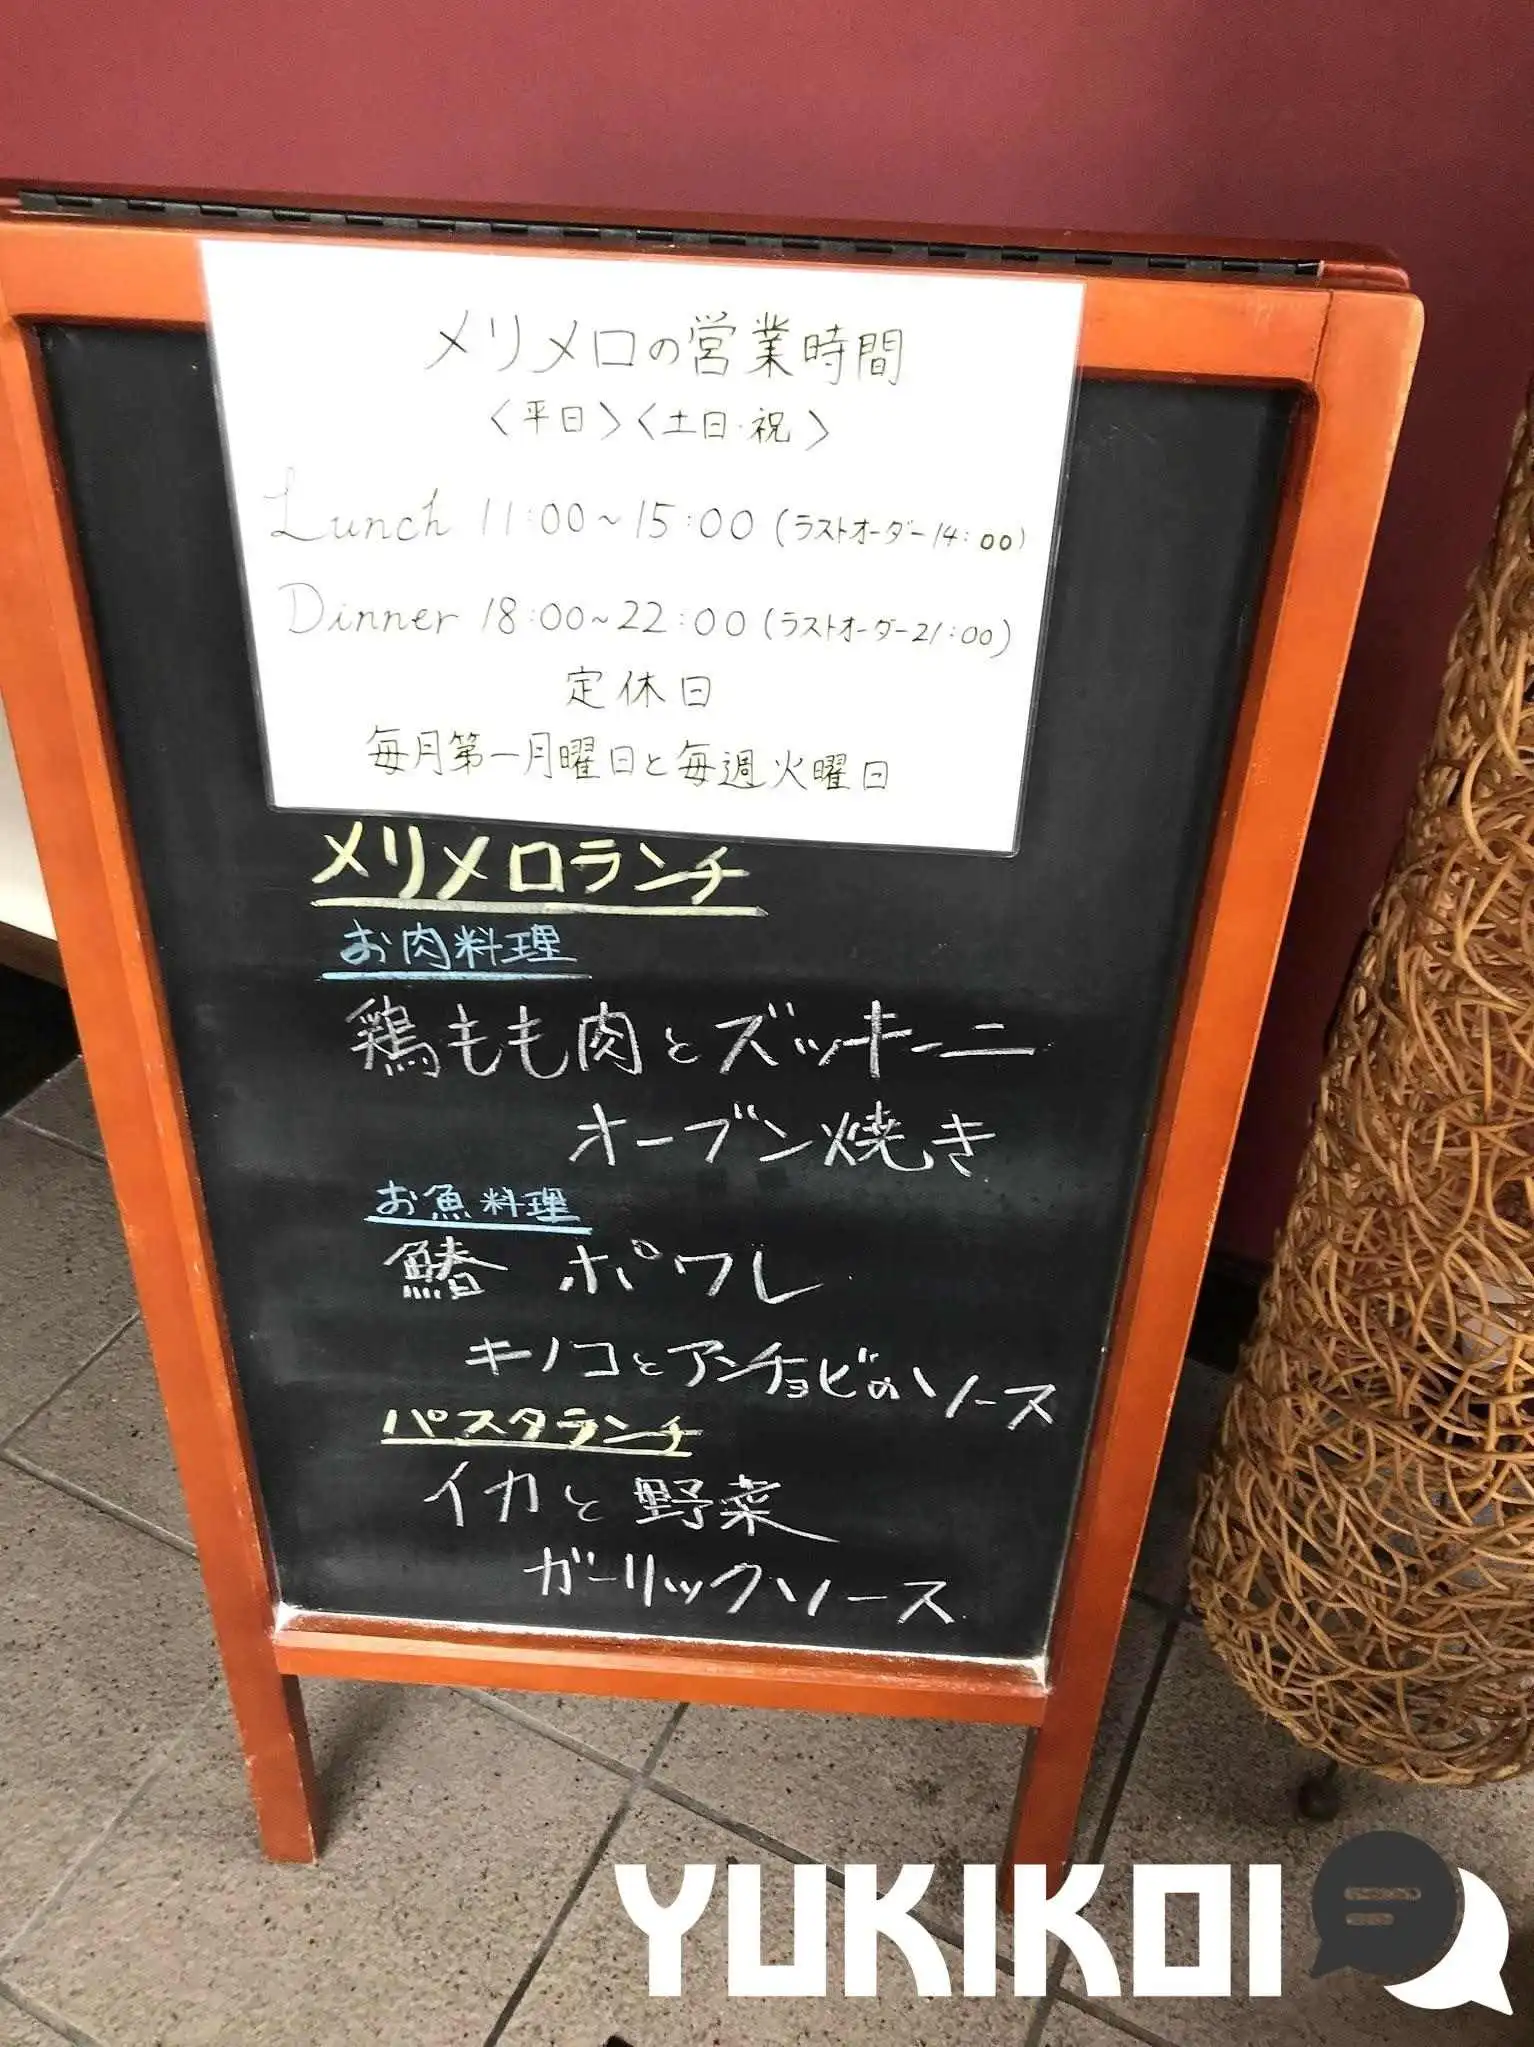 メリメロの営業時間
〈平日〉〈土日・祝〉
Lunch 11:00~15:00 (ラストオーダー14:00)
Dinner 18:00~22:00 (ラストオーダー21:00)
定休日
毎月第一月曜日と毎週火曜日
メリメロランチ
お肉料理
鶏もも肉とズッキーニ
オーブン焼き
お魚料理
鰆 ポワレ
キノコとアンチョビのソース
パスタランチ
イカと野菜
ガーリックソース
YUKIKOI